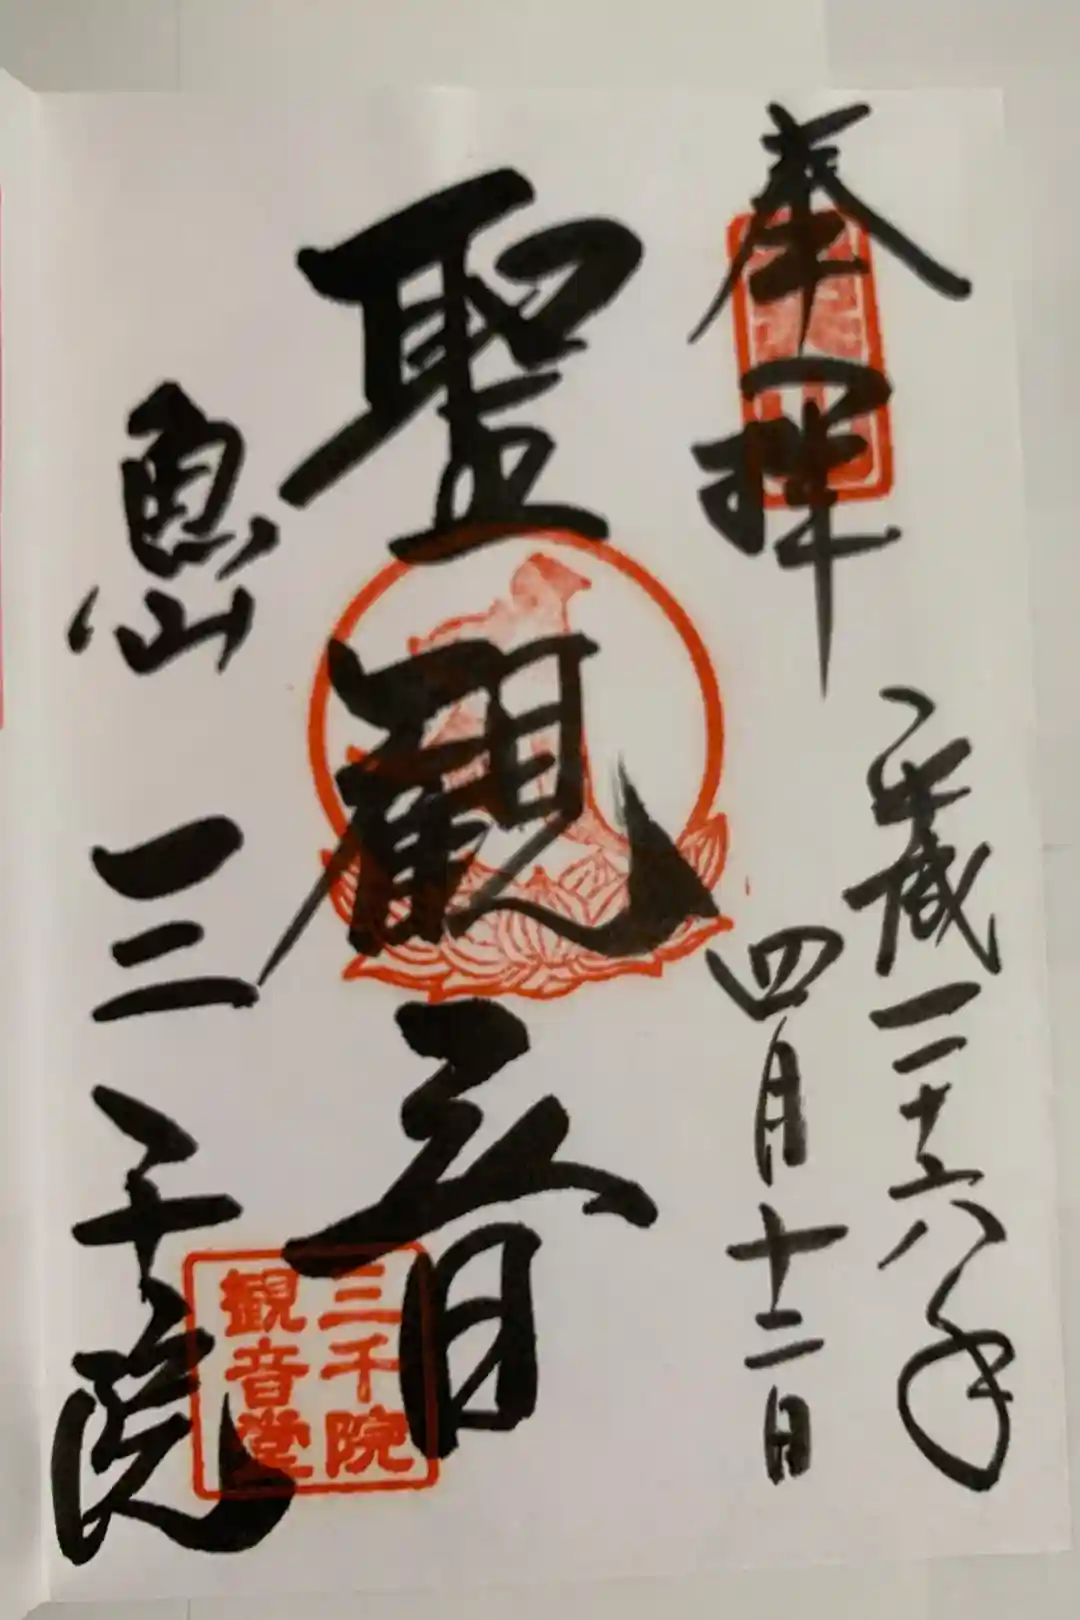 奉拝
平成二十六年
四月十二日
聖観音
魚山 三千院
三千院
観音堂